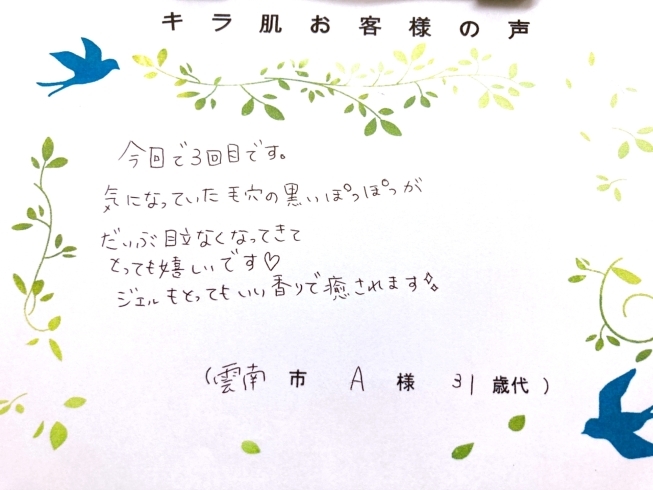 キラ肌お客様の声
今回で3回目です。
気になっていた毛穴の黒いぽっぽっが
だいぶ目立なくなってきて
とっても嬉しいです♡
ジェルもとってもいい香りで癒されます
(雲南 市 A 様 31 歳代)